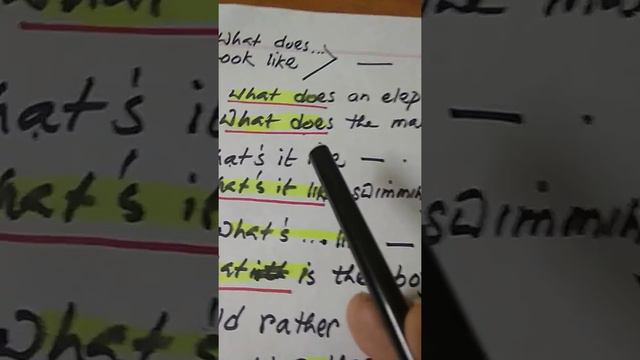 What does...
ook like
What does an elep
What does the ma
hat's it like
hat's it lik swimmi
What's ... li
at is the bo
ld rather